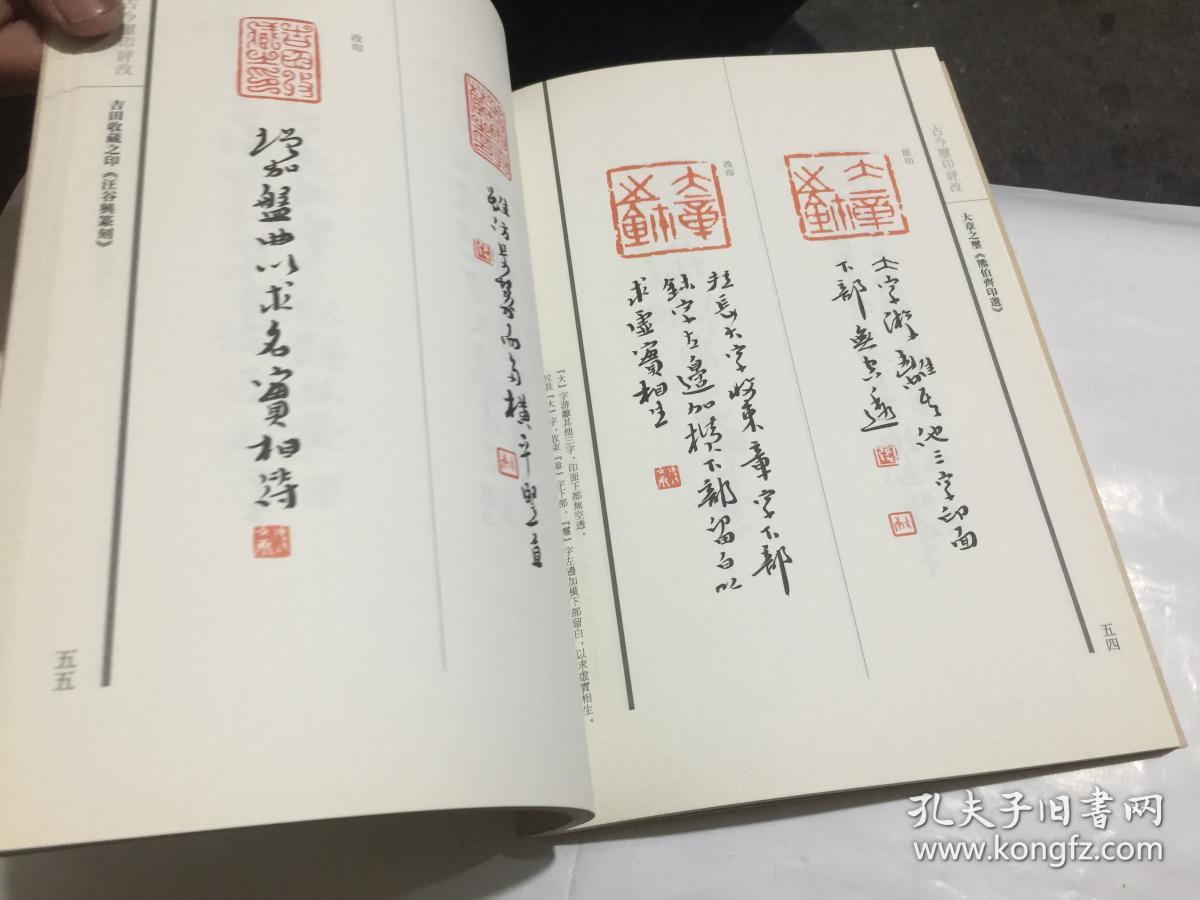 古今璽印評改
大章之璽《熊伯齊印選》
五四
原印
大字游離其他三字印面
下部無空透
改印
拉長大字收束章字下部
鉨字左邊加横下部留白以
求虛實相生
『大』字游離其他三字，印面下部無空透。
拉長『大』字，收束『章』字下部，『璽』字左邊加橫下部留白，以求虛實相生。
橫平豎直
改印
增加盤曲以求名實相符
古今璽印評改
吉田收藏之印《汪谷興篆刻》
五五
孔夫子旧书网
www.kongfz.com